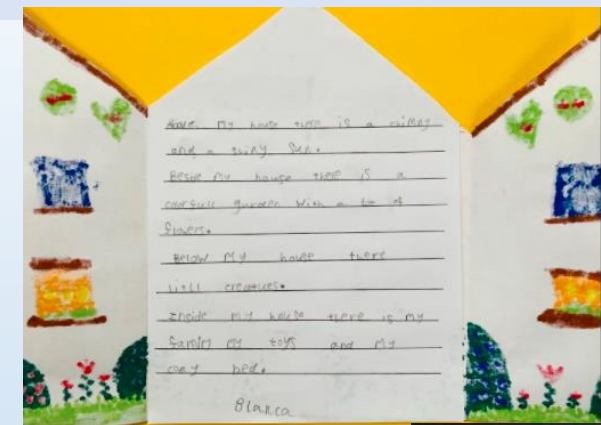 Above my house there is a chimny
and a shiny Sun.
Beside my house there is a
courfull gurden with a lot of
flowers.
Below my house there
litll creatures.
Inside my house there is my
family my toys and my
cozy bed.
Blanca